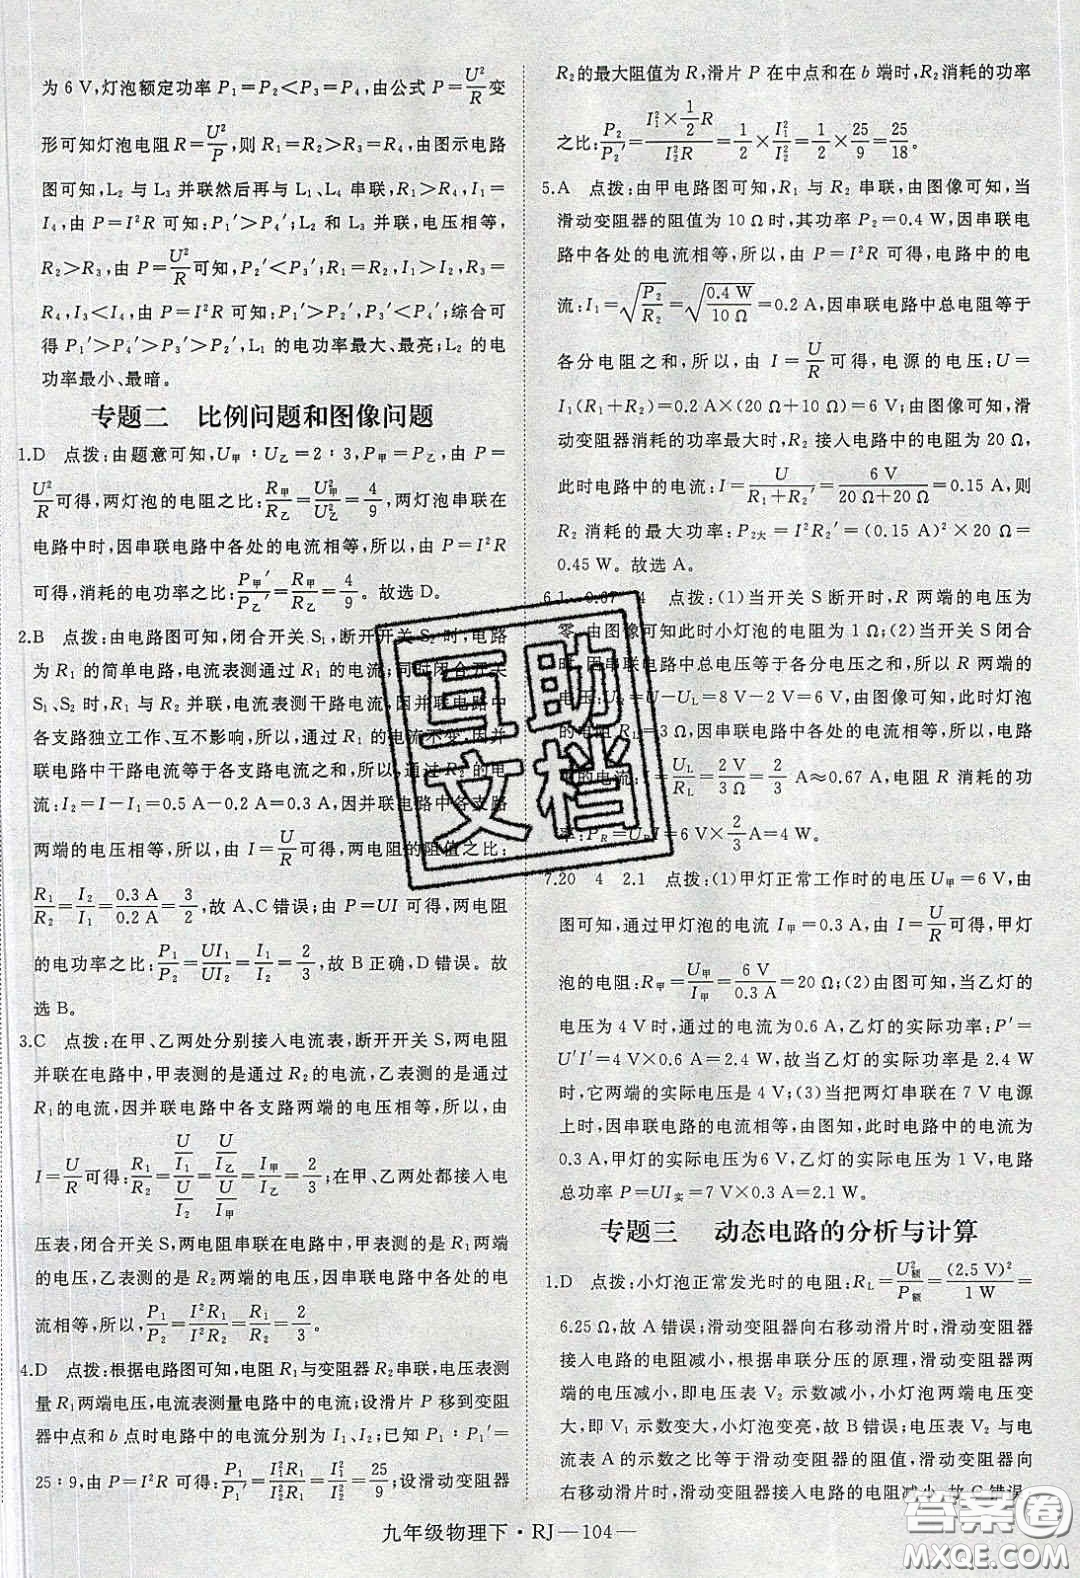 为 6 V,灯泡额定功率 P₁=P₂<P₃=P₄,由公式 P=U²/R 变
形可知灯泡电阻 R=U²/P,则 R₁=R₂>R₃=R₄,由图示电路
图可知,L₂ 与 L₃ 并联然后再与 L₁、L₄ 串联,R₁>R₄,I₁=
I₄,由 P=I²R 可知:P₁′>P₄′;L₂ 和 L₃ 并联,电压相等,
R₂>R₃,由 P=U²/R 可知,P₂′<P₃′;因为 R₃=
R₄,I₃<I₄,由 P=I²R 可知:P₁′>P₂′,P₃′<P₄′;综合可
得 P₁′>P₄′>P₃′>P₂′,L₁ 的电功率最大、最亮;L₂ 的电
功率最小、最暗。
专题二 比例问题和图像问题
1.D 点拨:由题意可知,U甲∶U乙=2∶3,P甲=P乙,由 P=
U²/R 可得,两灯泡的电阻之比:R甲/R乙=U²甲/U²乙=4/9,两灯泡串联在
电路中时,因串联电路中各处的电流相等,所以,由 P=I²R
可得,消耗的电功率之比:P甲′/P乙′=R甲/R乙=4/9。故选 D。
2.B 点拨:由电路图可知,闭合开关 S₁,断开开关 S₂ 时,电路
为 R₁ 的简单电路,电流表测通过 R₁ 的电流;同时闭合开关
S₁、S₂ 时,R₁ 与 R₂ 并联,电流表测干路电流,因并联电路中
各支路独立工作、互不影响,所以,通过 R₁ 的电流不变,因并
联电路中干路电流等于各支路电流之和,所以,通过 R₂ 的电
流:I₂=I-I₁=0.5 A-0.2 A=0.3 A,因并联电路中各支路
两端的电压相等,所以,由 I=U/R 可得,两电阻的阻值之比:
R₁/R₂=I₂/I₁=0.3 A/0.2 A=3/2,故 A、C 错误;由 P=UI 可得,两电阻
的电功率之比:P₁/P₂=UI₁/UI₂=I₁/I₂=2/3,故 B 正确,D 错误。故
选 B。
3.C 点拨:在甲、乙两处分别接入电流表,断开开关 S,两电阻
并联在电路中,甲表测的是通过 R₂ 的电流,乙表测的是通过
R₁的电流,因并联电路中各支路两端的电压相等,所以,由
I=U/R可得:R₁/R₂=(U/I₁)/(U/I₂)=(U/I乙)/(U/I甲)=I甲/I乙=2/3;在甲、乙两处都接入电
压表,闭合开关 S,两电阻串联在电路中,甲表测的是 R₁ 两端
的电压,乙表测的是 R₂ 两端的电压,因串联电路中各处的电
流相等,所以,P₁/P₂=I²R₁/I²R₂=R₁/R₂=2/3。
4.D 点拨:根据电路图可知,电阻 R₁与变阻器 R₂串联,电压表测
量 R₁两端电压,电流表测量电路中的电流;设滑片 P 移到变阻
器中点和 b 点时电路中的电流分别为 I₁、I₂;已知 P₁∶P₁′=
25∶9,由 P=I²R 可得:P₁/P₁′=I₁²R₁/I₂²R₁=I₁²/I₂²=25/9;设滑动变阻器
R₂的最大阻值为 R,滑片 P 在中点和在 b 端时,R₂消耗的功率
之比:P₂/P₂′=(I₁²×1/2R)/(I₂²R)=1/2×I₁²/I₂²=1/2×25/9=25/18。
5.A 点拨:由甲电路图可知,R₁ 与 R₂ 串联,由图像可知,当
滑动变阻器的阻值为 10 Ω时,其功率 P₂=0.4 W,因串联电
路中各处的电流相等,所以,由 P=I²R 可得,电路中的电
流:I₁=√(P₂/R₂)=√(0.4 W/10 Ω)=0.2 A,因串联电路中总电阻等于
各分电阻之和,所以,由 I=U/R 可得,电源的电压:U=
I₁(R₁+R₂)=0.2 A×(20 Ω+10 Ω)=6 V;由图像可知,滑
动变阻器消耗的功率最大时,R₂ 接入电路中的电阻为 20 Ω,
此时电路中的电流:I=U/(R₁+R₂′)=6 V/(20 Ω+20 Ω)=0.15 A,则
R₂ 消耗的最大功率:P₂大=I²R₂′=(0.15 A)²×20 Ω=
0.45 W。故选 A。
6.1 0.67 4 点拨:(1)当开关 S断开时,R 两端的电压为
零,由图像可知此时小灯泡的电阻为 1 Ω;(2)当开关 S闭合
时,因串联电路中总电压等于各分电压之和,所以 R 两端的
电压:U_R=U-U_L=8 V-2 V=6 V,由图像可知,此时灯泡
的电阻 R_L=3 Ω,因串联电路中各处的电流相等,所以,电路
的电流:I=U_L/R_L=2 V/3 Ω=2/3 A≈0.67 A,电阻 R 消耗的功
率:P_R=U_RI=6 V×2/3 A=4 W。
7.20 4 2.1 点拨:(1)甲灯正常工作时的电压 U甲=6 V,由
图可知,通过甲灯泡的电流 I甲=0.3 A,由 I=U/R可得,甲灯
泡的电阻:R甲=U甲/I甲=6 V/0.3 A=20 Ω;(2)由图可知,当乙灯
的电压为 4 V时,通过的电流为0.6 A,乙灯的实际功率:P′=
U′I′=4 V×0.6 A=2.4 W,故当乙灯的实际功率是 2.4 W
时,它两端的实际电压是 4 V;(3)当把两灯串联在 7 V 电源
上时,因串联电路的电流相等,由图可知,此时电路中的电流为
0.3 A,甲灯的实际电压为6 V,乙灯的实际电压为 1 V,电路
总功率 P=UI实=7 V×0.3 A=2.1 W。
专题三 动态电路的分析与计算
1.D 点拨:小灯泡正常发光时的电阻:R_L=U²额/P额=(2.5 V)²/1 W=
6.25 Ω,故 A 错误;滑动变阻器向右移动滑片时,滑动变阻器
接入电路的电阻减小,根据串联分压的原理,滑动变阻器两
端的电压减小,即电压表 V₂ 示数减小,小灯泡两端电压变
大,即 V₁ 示数变大,小灯泡变亮,故 B错误;电压表 V₂ 与电
流表 A 的示数之比等于滑动变阻器的阻值,滑动变阻器向
右移动滑片时,滑动变阻器接入电路的电阻减小,故 C 错误
九年级物理下·RJ—104—
互助
文档
答案圈
MXQE.COM